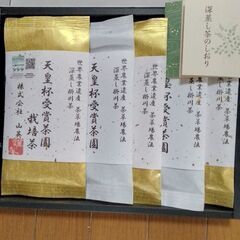 深蒸し茶のしおり
世界農業遺産 茶草場農法
深蒸し掛川茶
天皇杯受賞茶園
栽培茶
株式会社 山英
世界農業遺産 茶草場農法
深蒸し掛川茶
天皇杯受賞茶園
世界農業遺産 茶草場農法
深蒸し掛川茶
天皇杯受賞茶園